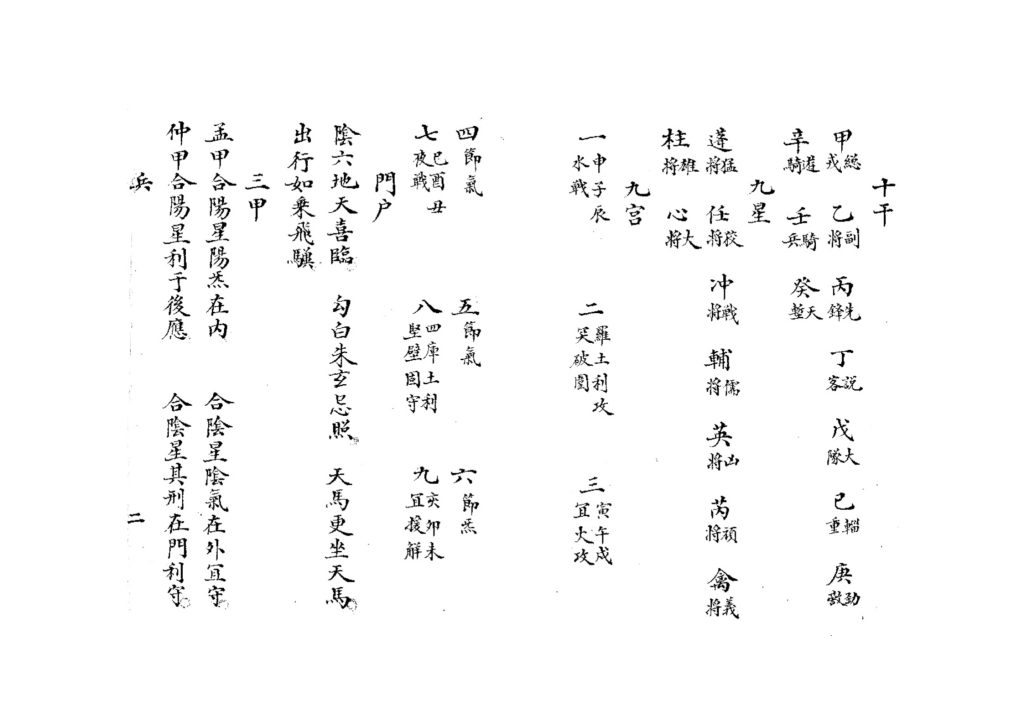 十干
甲總戎 乙副將 丙先鋒 丁說客 戊大隊 己輜重 庚勁敵
辛遊騎 壬騎兵 癸天塹
九星
蓬猛將 任狡將 冲戰將 輔儒將 英凶將 芮頑將 禽義將
柱雄將 心大將
九宮
一申子辰水戰 二羅土利攻突破圍 三寅午戌宜火攻
四節氣 五節氣 六節炁
七巳酉丑夜戰 八四庫土利堅壁固守 九亥卯未宜援解
門户
陰六地天喜臨 勾白朱玄忌照 天馬更坐天馬
出行如乘飛
三甲
孟甲合陽星陽炁在内 合陰星陰氣在外宜守
仲甲合陽星利于後應 合陰星其刑在門利守
兵 二